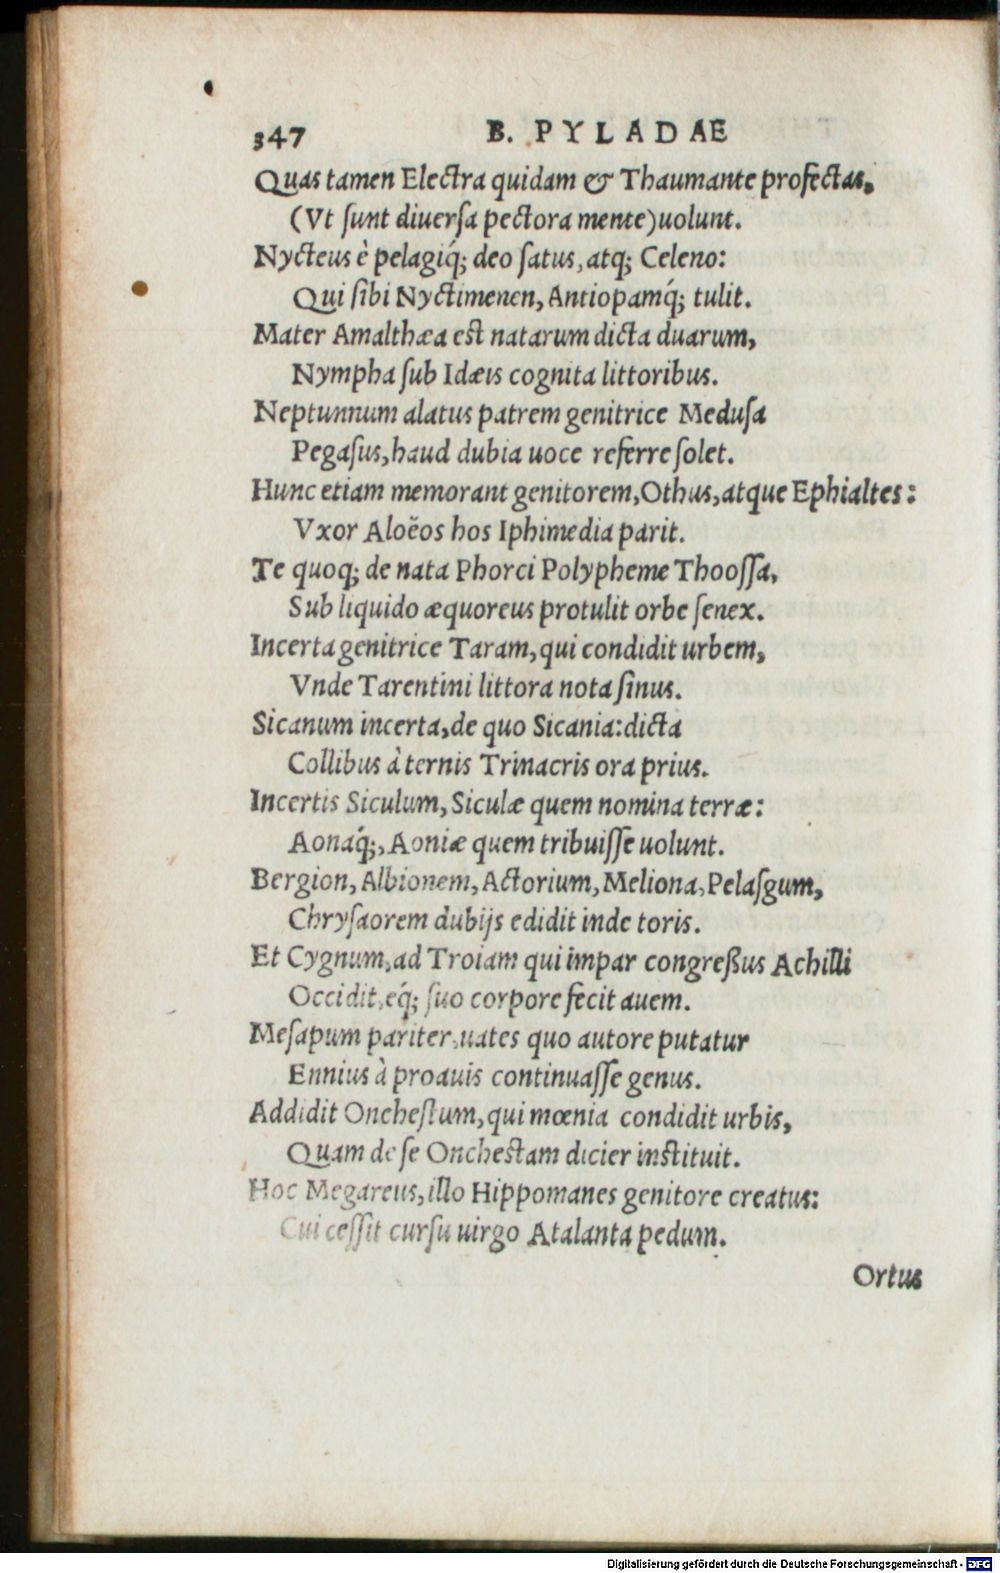 347 B. PYLADAE
Quas tamen Electra quidam & Thaumante profectas,
(Vt ſunt diuerſa pectora mente)uolunt.
Nycteus è pelagiq́; deo ſatus, atq; Celeno:
Qui ſibi Nyctimenen, Antiopamq́; tulit.
Mater Amalthæa est natarum dicta duarum,
Nympha ſub Idæis cognita littoribus.
Neptunnum alatus patrem genitrice Meduſa
Pegaſus, haud dubia uoce referre ſolet.
Hunc etiam memorant genitorem, Othus, atque Ephialtes:
Vxor Aloëos hos Iphimedia parit.
Te quoq; de nata Phorci Polypheme Thooſſa,
Sub liquido æquoreus protulit orbe ſenex.
Incerta genitrice Taram, qui condidit urbem,
Vnde Tarentini littora nota ſinus.
Sicanum incerta, de quo Sicania: dicta
Collibus à ternis Trinacris ora prius.
Incertis Siculum, Siculæ quem nomina terræ:
Aonaq́;, Aoniæ quem tribuiſſe uolunt.
Bergion, Albionem, Actorium, Meliona, Pelaſgum,
Chryſaorem dubijs edidit inde toris.
Et Cygnum, ad Troiam qui impar congreßus Achilli
Occidit, eq́; ſuo corpore fecit auem.
Meſapum pariter, uates quo autore putatur
Ennius à proauis continuaſſe genus.
Addidit Oncheſtum, qui mœnia condidit urbis,
Quam de ſe Onchestam dicier instituit.
Hoc Megareus, illo Hippomanes genitore creatus:
Cui ceſſit curſu uirgo Atalanta pedum.
Ortus
Digitalisierung gefördert durch die Deutsche Forschungsgemeinschaft - DFG